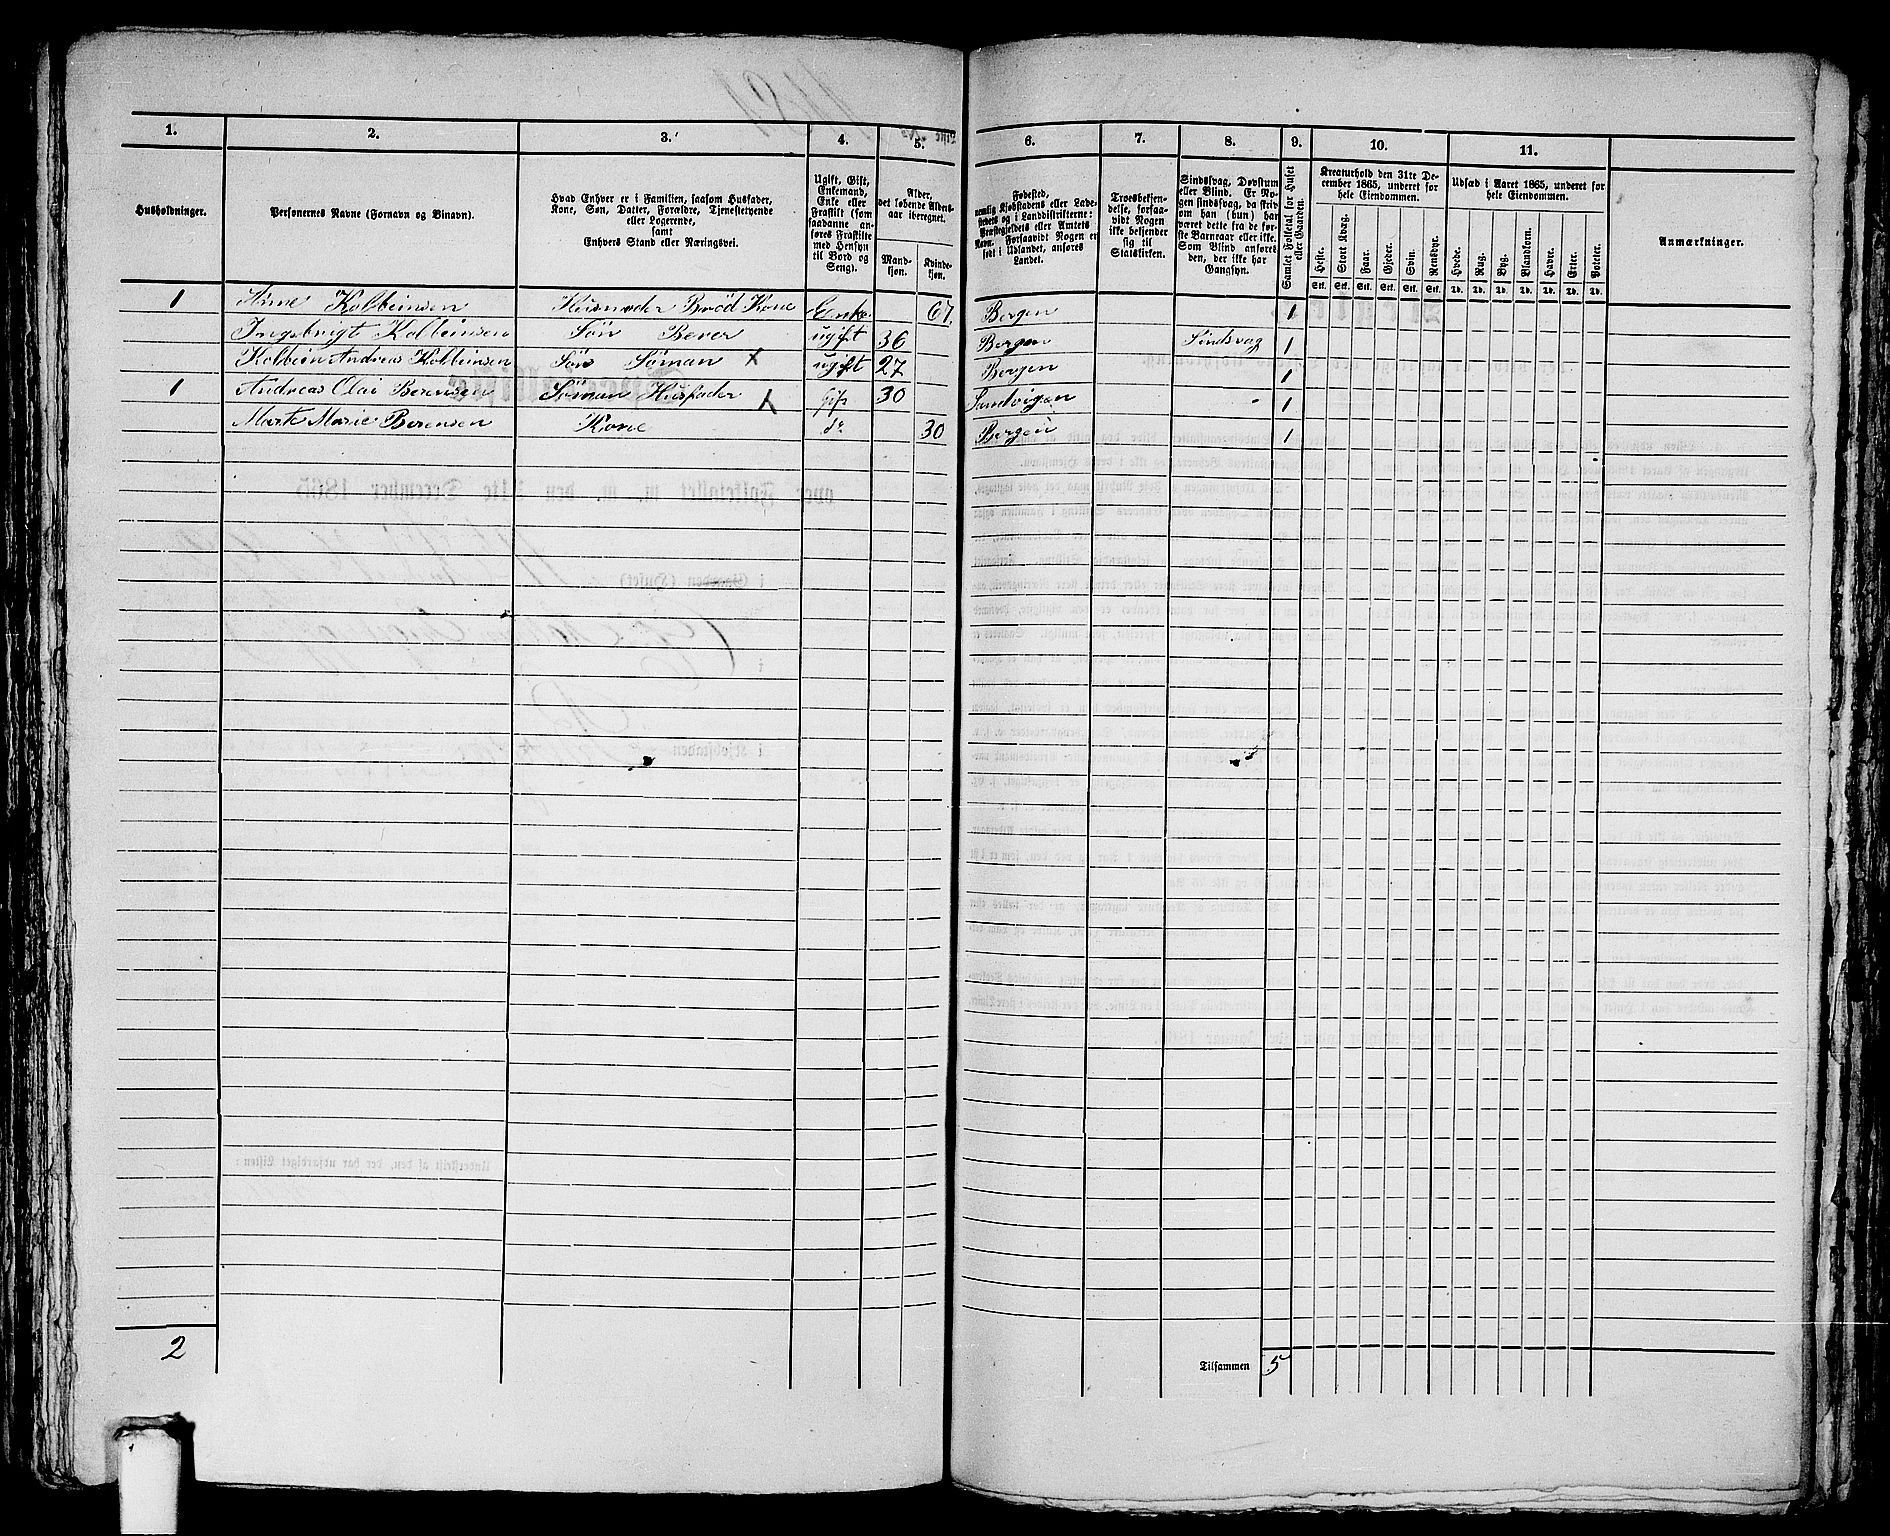 1. 2. 3. 4. 5. 6. 7. 8. 9. 10. 11.
Husholdninger.
Personernes Navne (Fornavn og Binavn).
Hvad Enhver er i Familien, saasom Husfader,
Kone, Søn, Datter, Forældre, Tjenestetyende
eller Logerende,
samt
Enhvers Stand eller Næringsvei.
Ugift, Gift,
Enkemand,
Enke eller
Fraskilt (som
saadanne an-
føres Fraskilte
med Hensyn
til Bord og
Seng).
Alder,
det løbende Alders-
aar iberegnet.
Mand-
kjøn.
Kvinde-
kjøn.
Fødested,
nemlig Kjøbstadens eller Lade-
stedets og i Landdistrikterne:
Præstegjeldets eller Amtets
Navn. Forsaavidt Nogen er
født i Udlandet, anføres
Landet.
Troesbekjen-
delse, forsaa-
vidt Nogen
ikke bekjender
sig til
Statskirken.
Sindssvag, Døvstum
eller Blind. Er No-
gen sindssvag, da skriv
om han (hun) har
været dette fra de før-
ste Barnaar eller ikke.
Som Blind anføres
den, der ikke har
Gangsyn.
Samlet Folketal for Huset
eller Gaarden.
Kreaturhold den 31te De-
cember 1865, underet for
hele Eiendommen.
Heste. Stort Kvæg. Faar. Gjeder. Svin. Rensdyr.
Stk. Stk. Stk. Stk. Stk. Stk.
Udsæd i Aaret 1865, underet for
hele Eiendommen.
Hvede. Rug. Byg. Blandkorn. Havre. Erter. Poteter.
Td. Td. Td. Td. Td. Td. Td.
Anmærkninger.
1 Anne Kolbeinsen Husmoder Brød Kone Enke 67. Bergen 1
Ingebrigt Kolbeinsen Søn Bever ugift 36 Bergen Sindsvag 1
Kolbein Andreas Kolbeinsen Søn Søman x ugift 27 Bergen 1
1 Andreas Olai Berensen Søman Husfader x gift 30 Sandvigen 1
Marte Marie Berensen Kone do 30 Bergen 1
2 Tilsammen 5